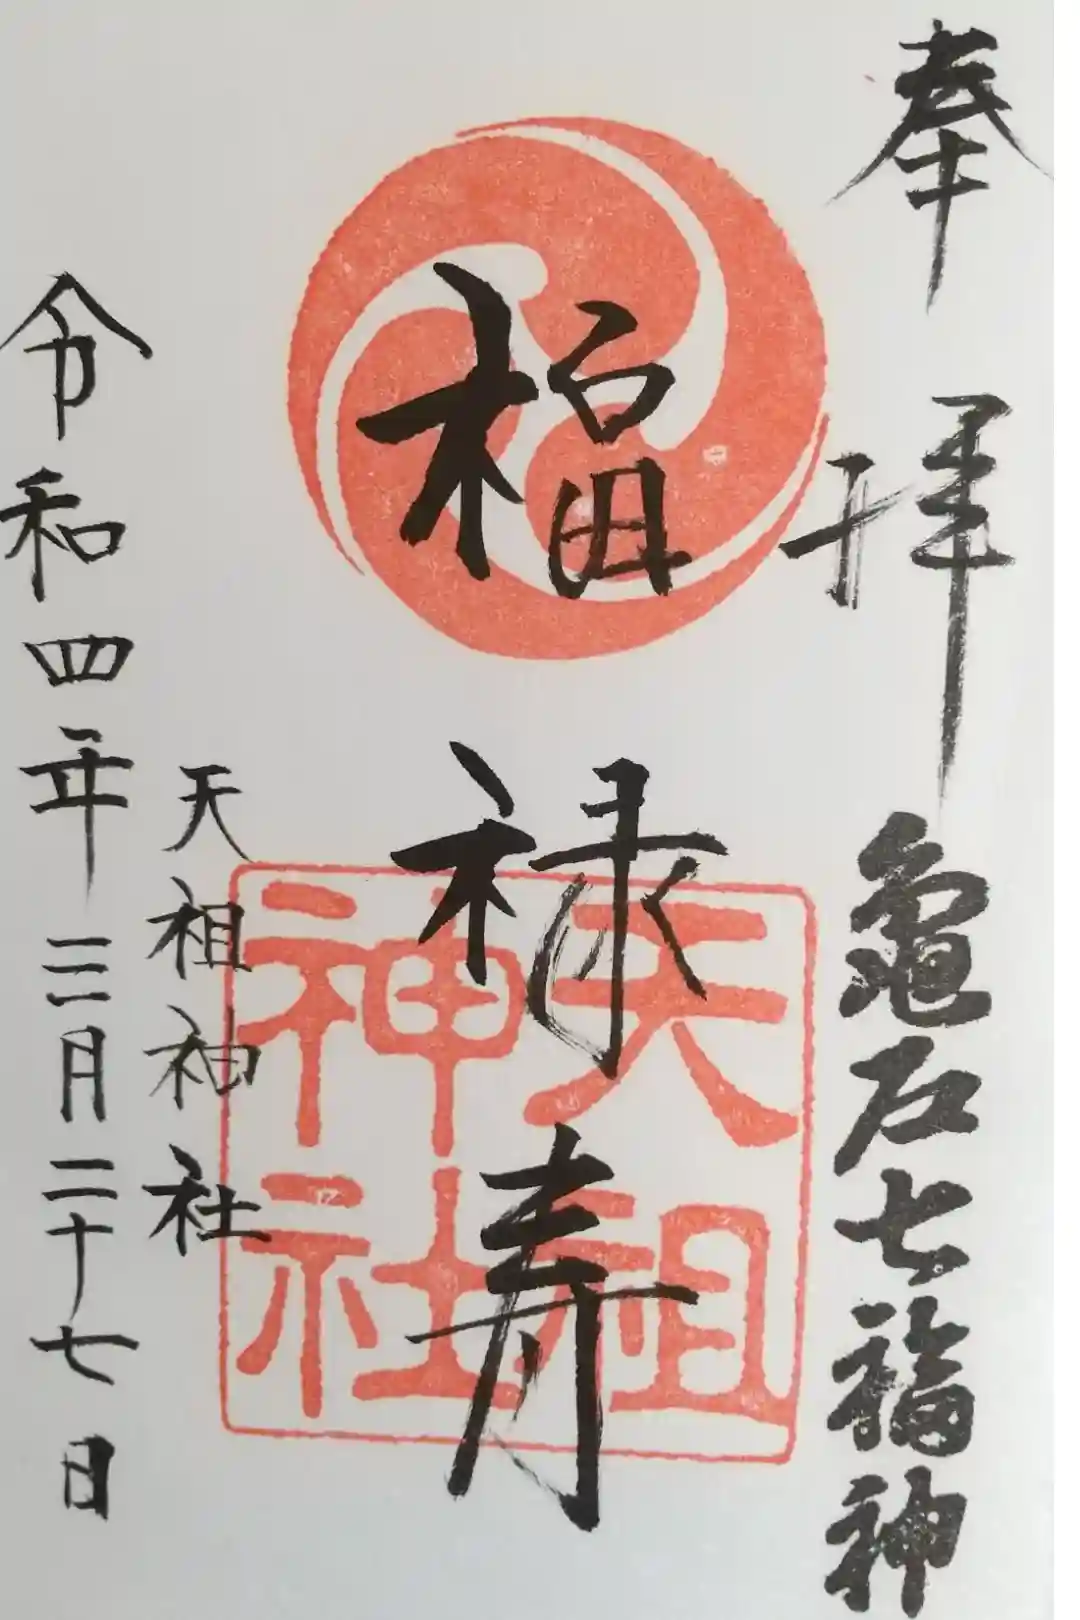 奉拝 亀戸七福神
福禄寿
天祖
神社
天祖神社
令和四年三月二十七日